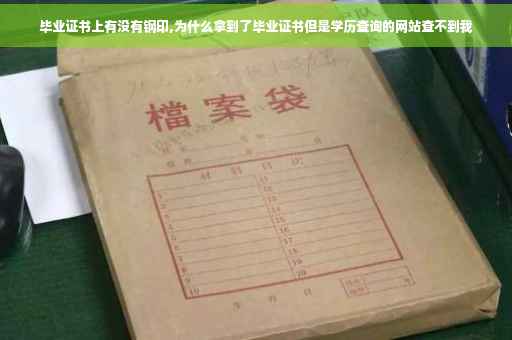 毕业证书上有没有钢印,为什么拿到了毕业证书但是学历查询的网站查不到我
檔案袋
材料目次
1 11
2 12
3 13
4 14
5 15
6 16
7 17
8 18
9 19
10 20
年 月 日